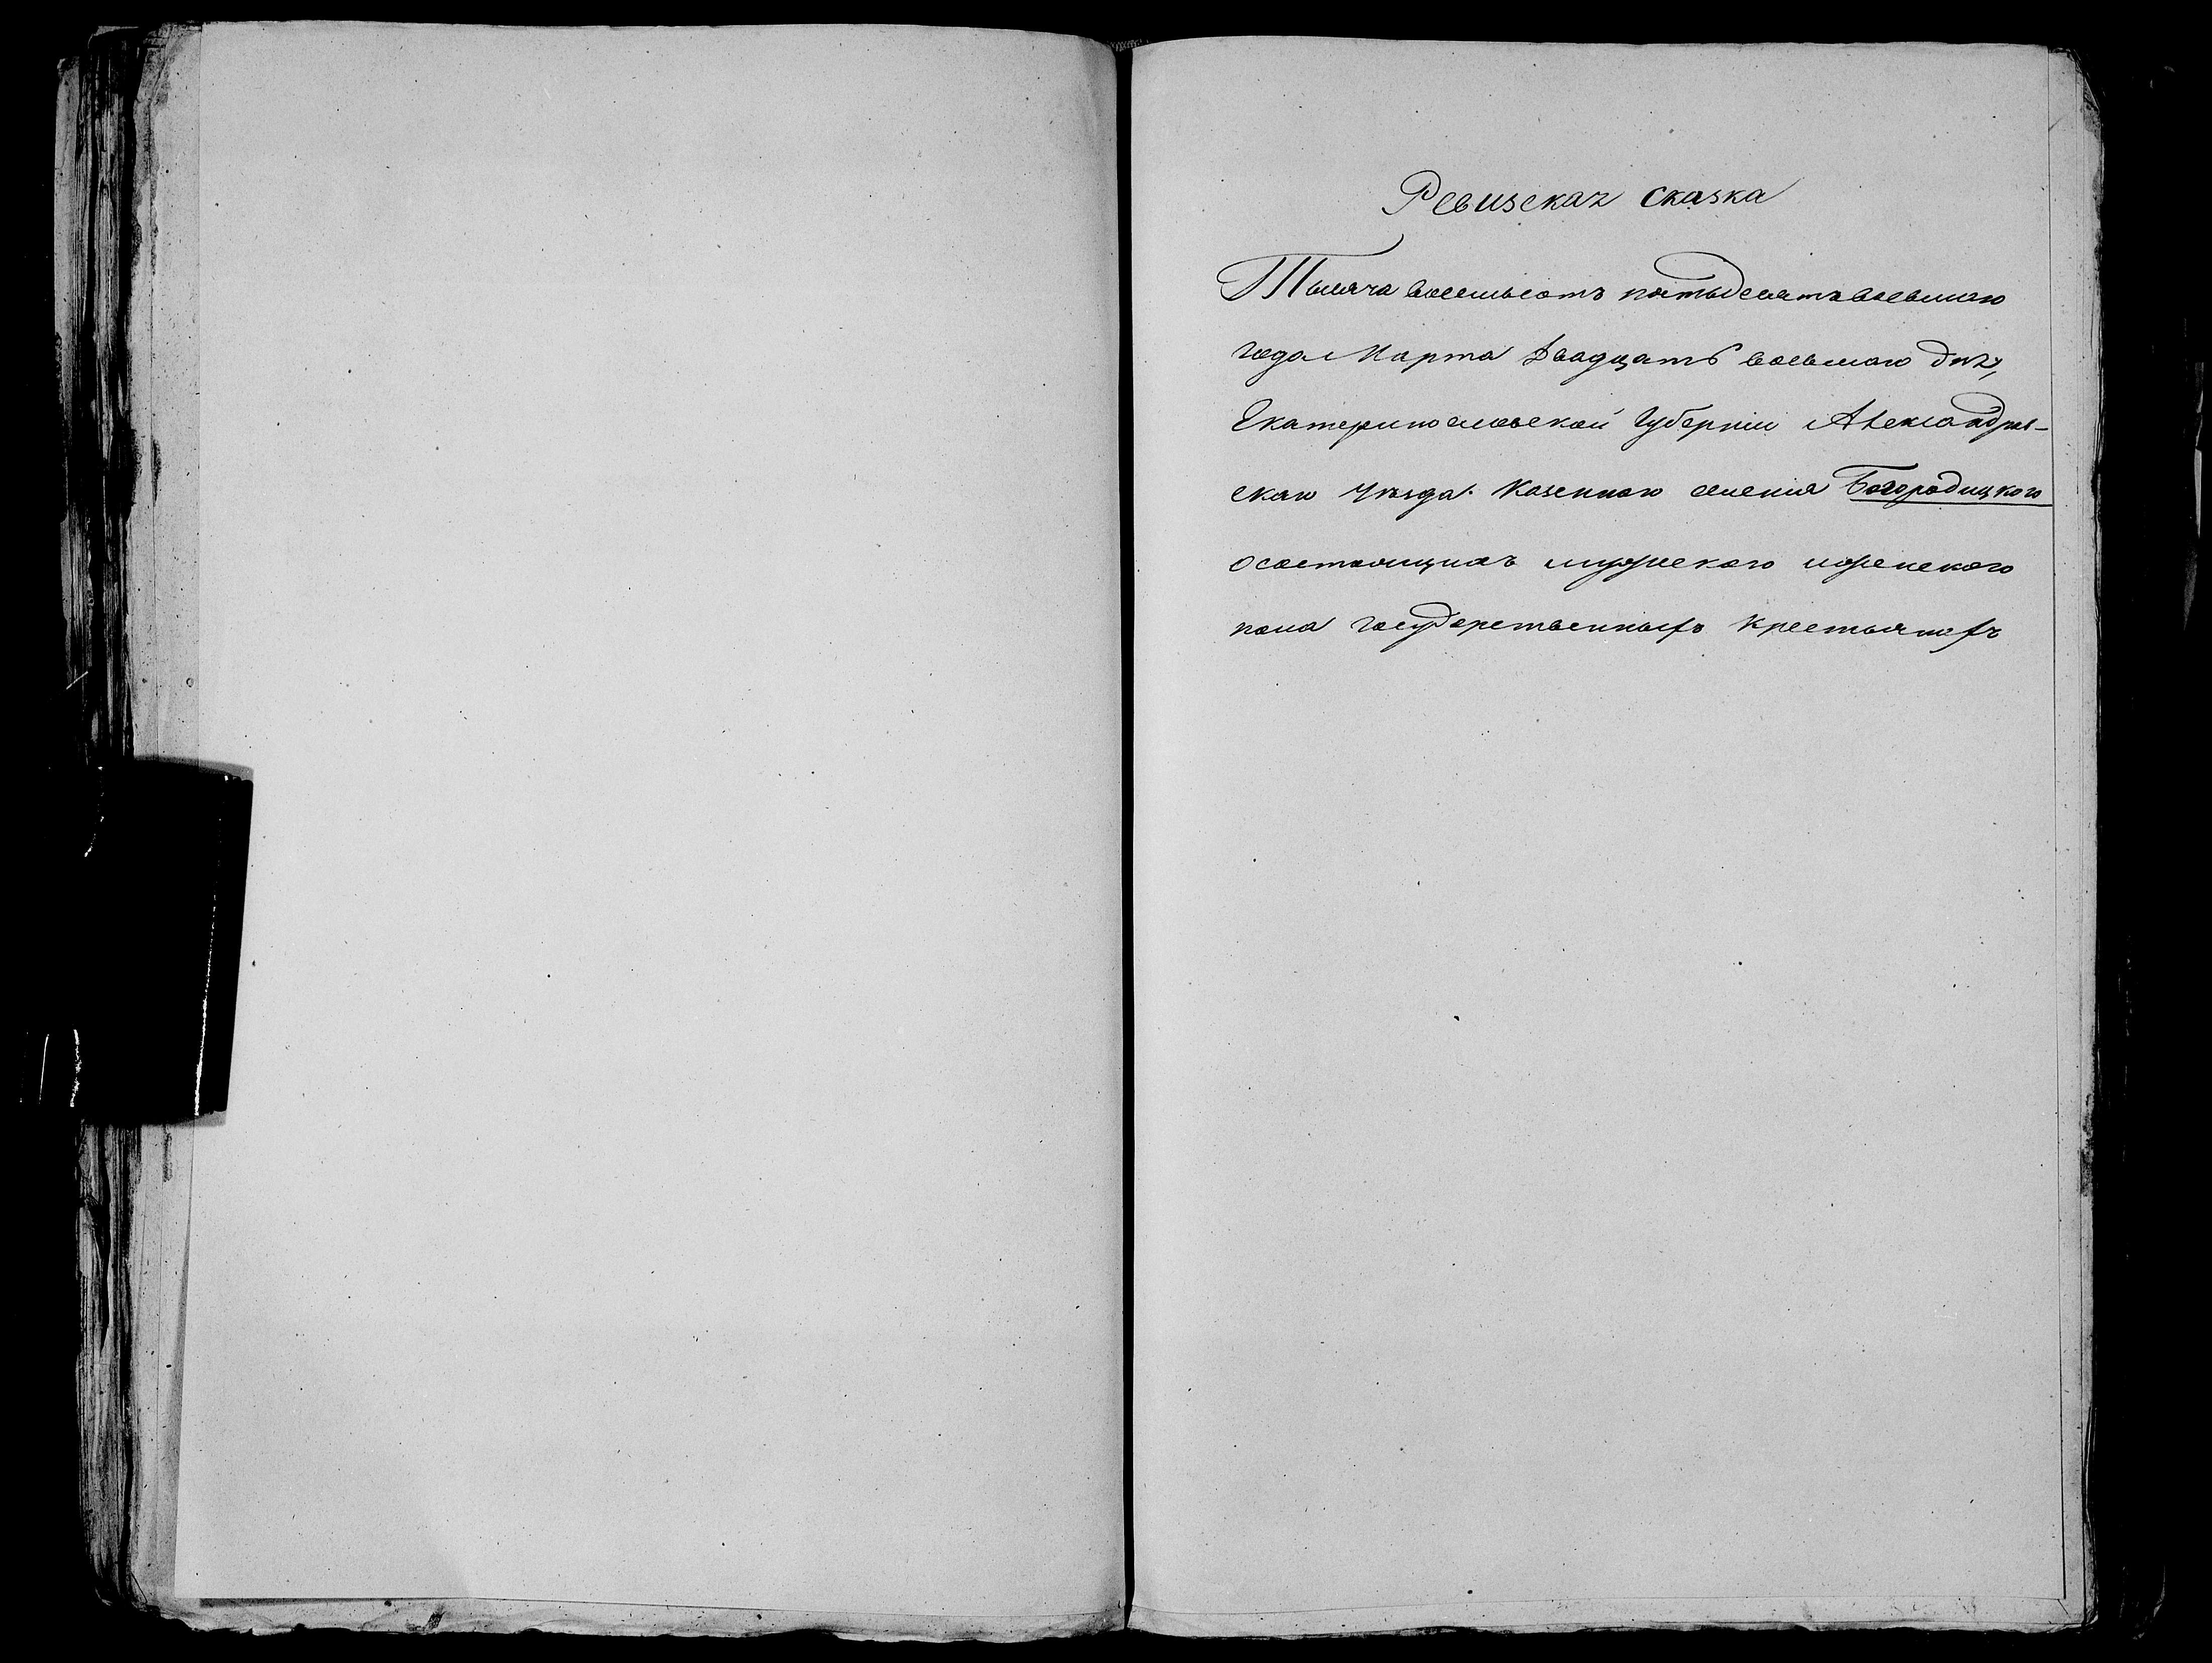 Ревизская сказка
Тысяча восемьсотъ пятьдесятъ восьмаго
года Марта двадцать восьмаго дня,
Екатеринославской Губерніи Александров-
скаго уѣзда казеннаго селенія Богородицкого
о состоящихъ мужескаго и женскаго
пола государственныхъ крестьянахъ